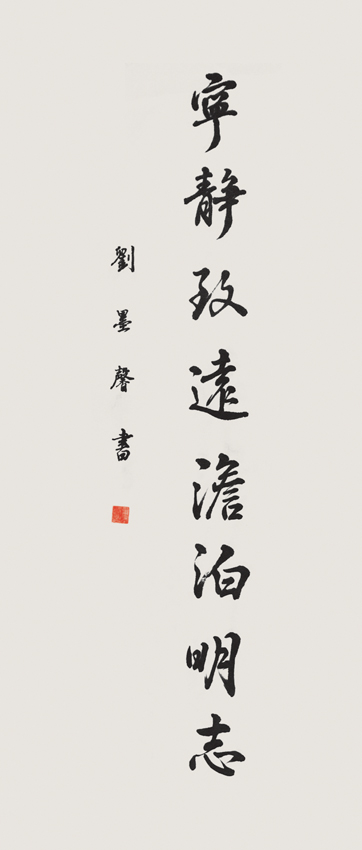 寧靜致遠澹泊明志
劉墨馨書